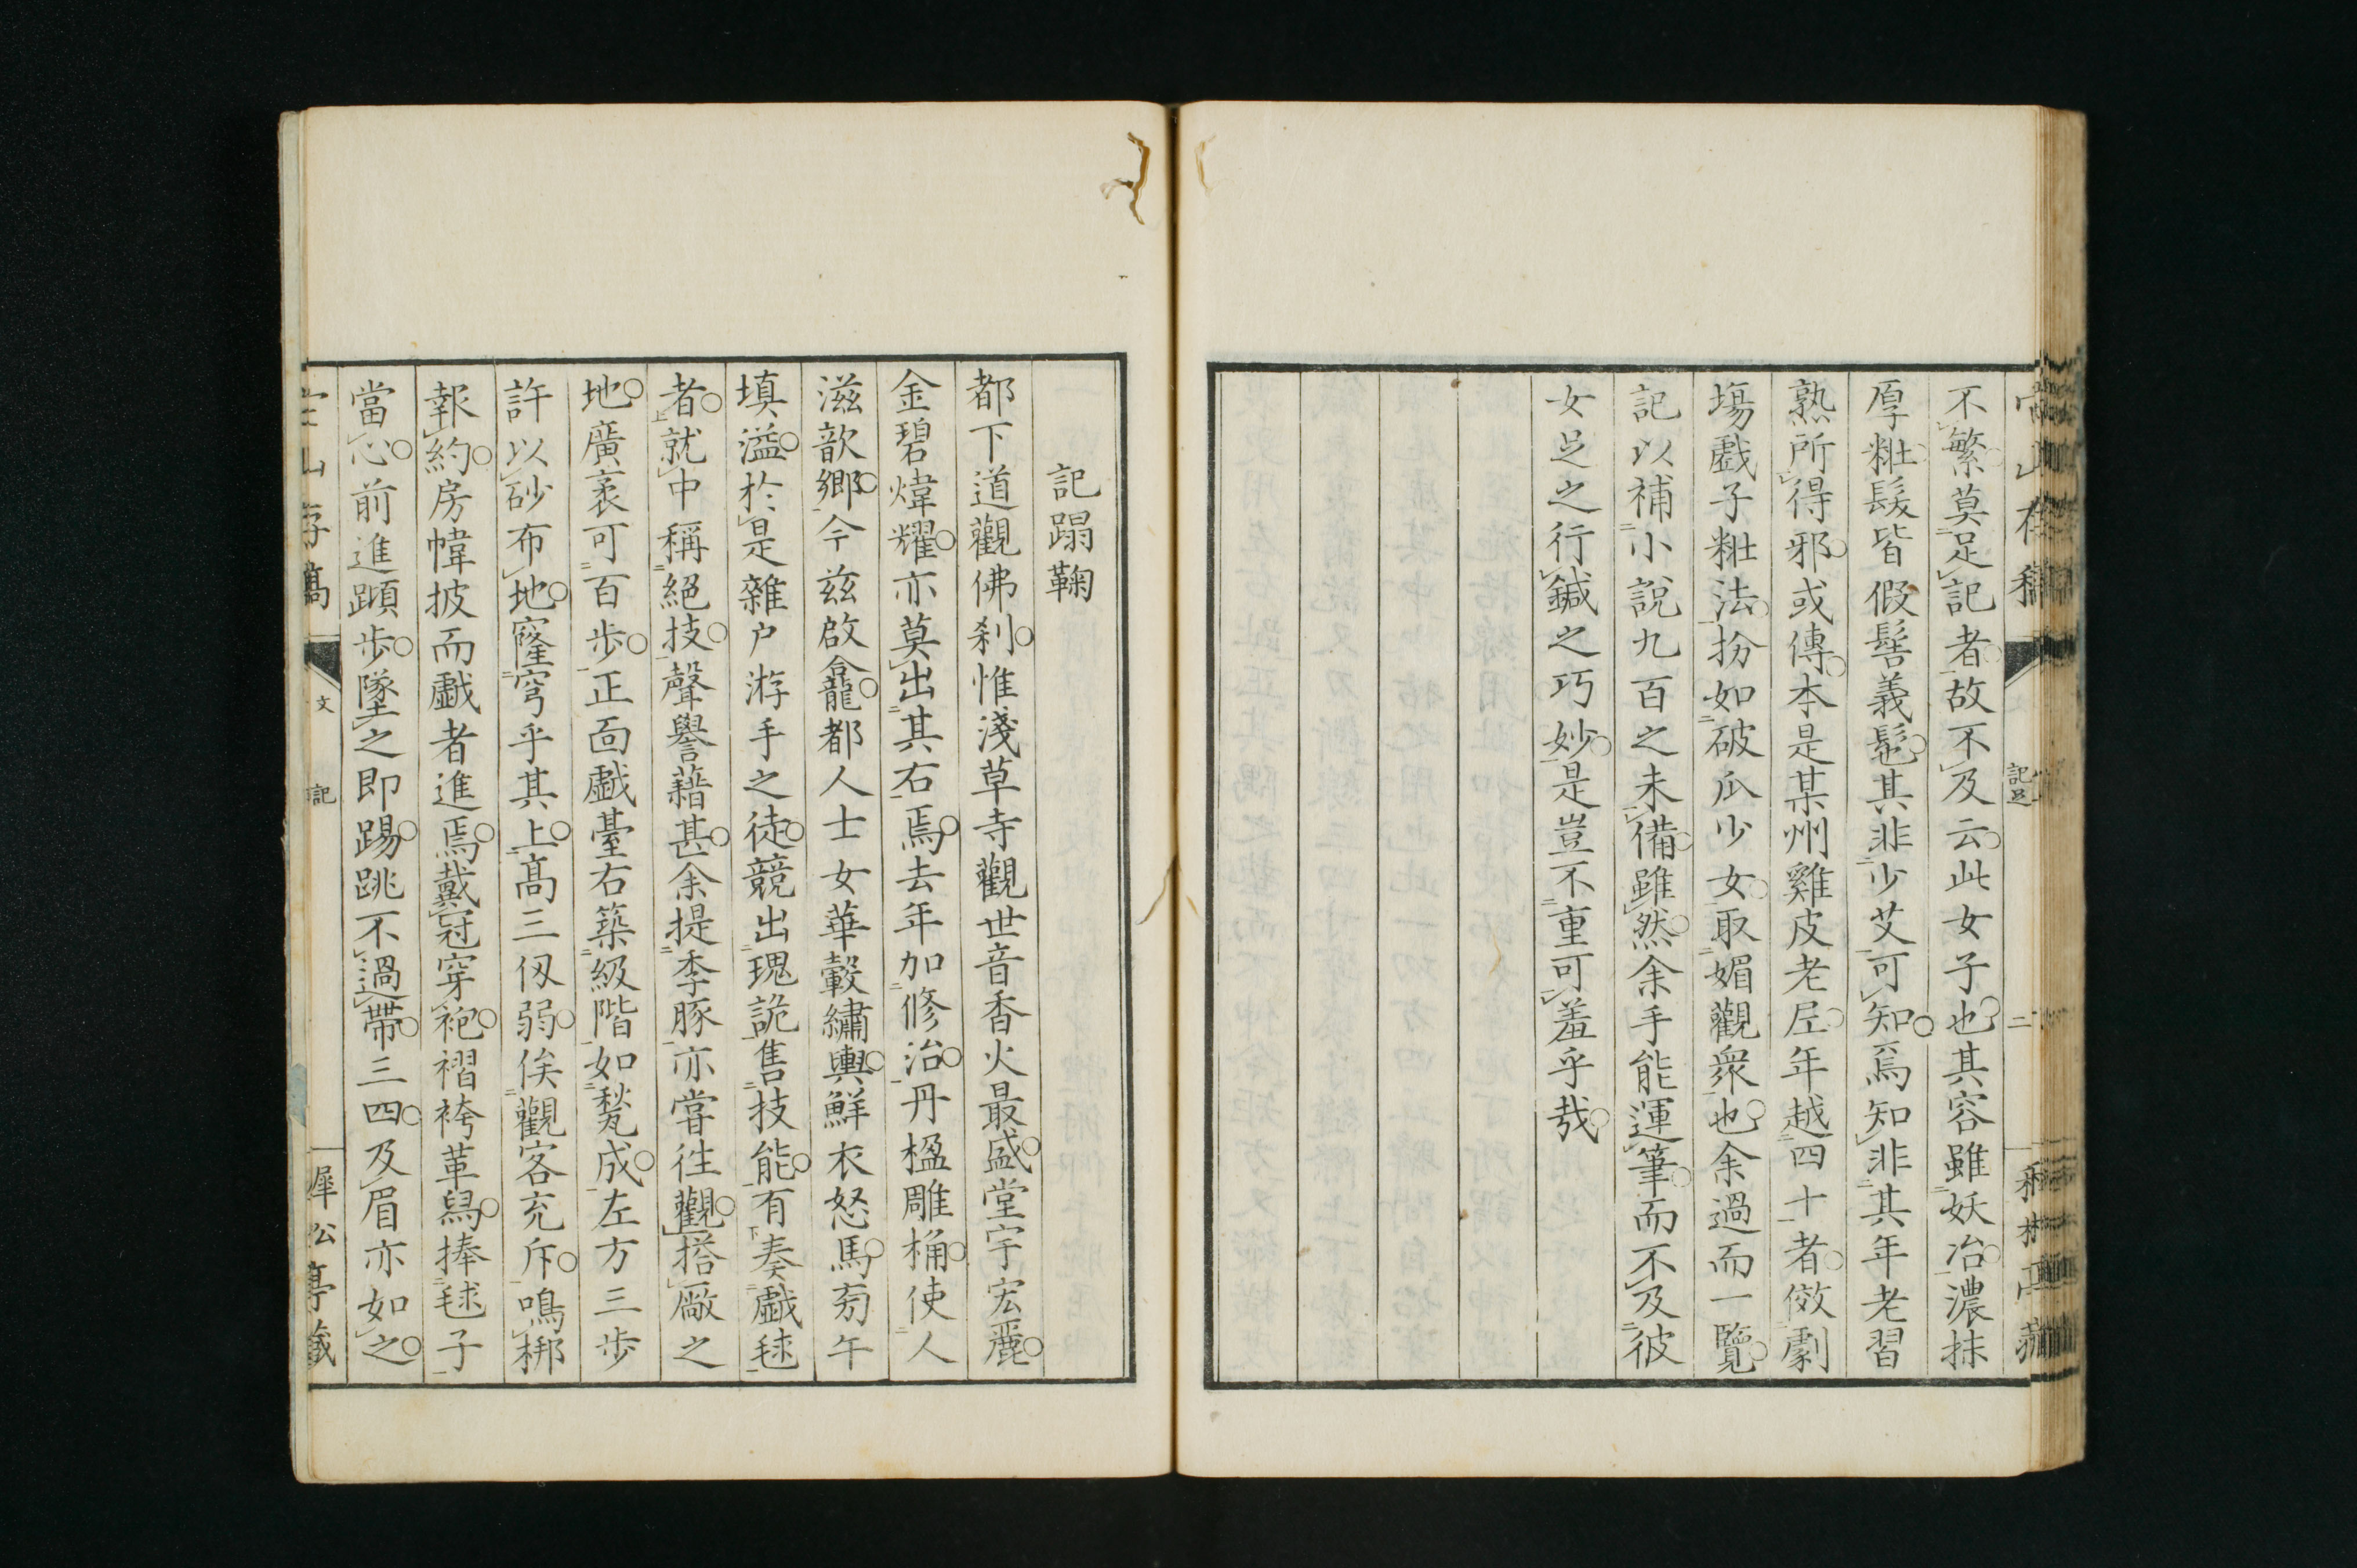 不繁莫足記者故不及云此女子也其容雖妖冶濃抹
厚粧髮皆假髻義髢其非少艾可知焉知非其年老習
熟所得邪或傳本是某州雞皮老尼年越四十者倣劇
塲戲子粧法扮如破瓜少女取媚觀衆也余過而一覽
記以補小說九百之未備雖然余手能運筆而不及彼
女足之行鍼之巧妙是豈不重可羞乎哉
記蹋鞠
都下道觀佛刹惟淺草寺觀世音香火最盛堂宇宏麗
金碧煒耀亦莫出其右焉去年加修治丹楹雕桷使人
滋歆鄉今茲啟龕都人士女華轂繡輿鮮衣怒馬旁午
填溢於是雜户游手之徒競出瑰詭售技能有奏戲毬
者就中稱絕技聲譽藉甚余提季豚亦嘗往觀搭廠之
地廣袤可百步正面戲臺右築級階如甃成左方三步
許以砂布地窿穹乎其上高三仭弱俟觀客充斥鳴梆
報約房幃披而戲者進焉戴冠穿袍褶袴革舄捧毬子
當心前進蹞步墜之即踢跳不過帶三四及眉亦如之
文
記
犀公亭藏